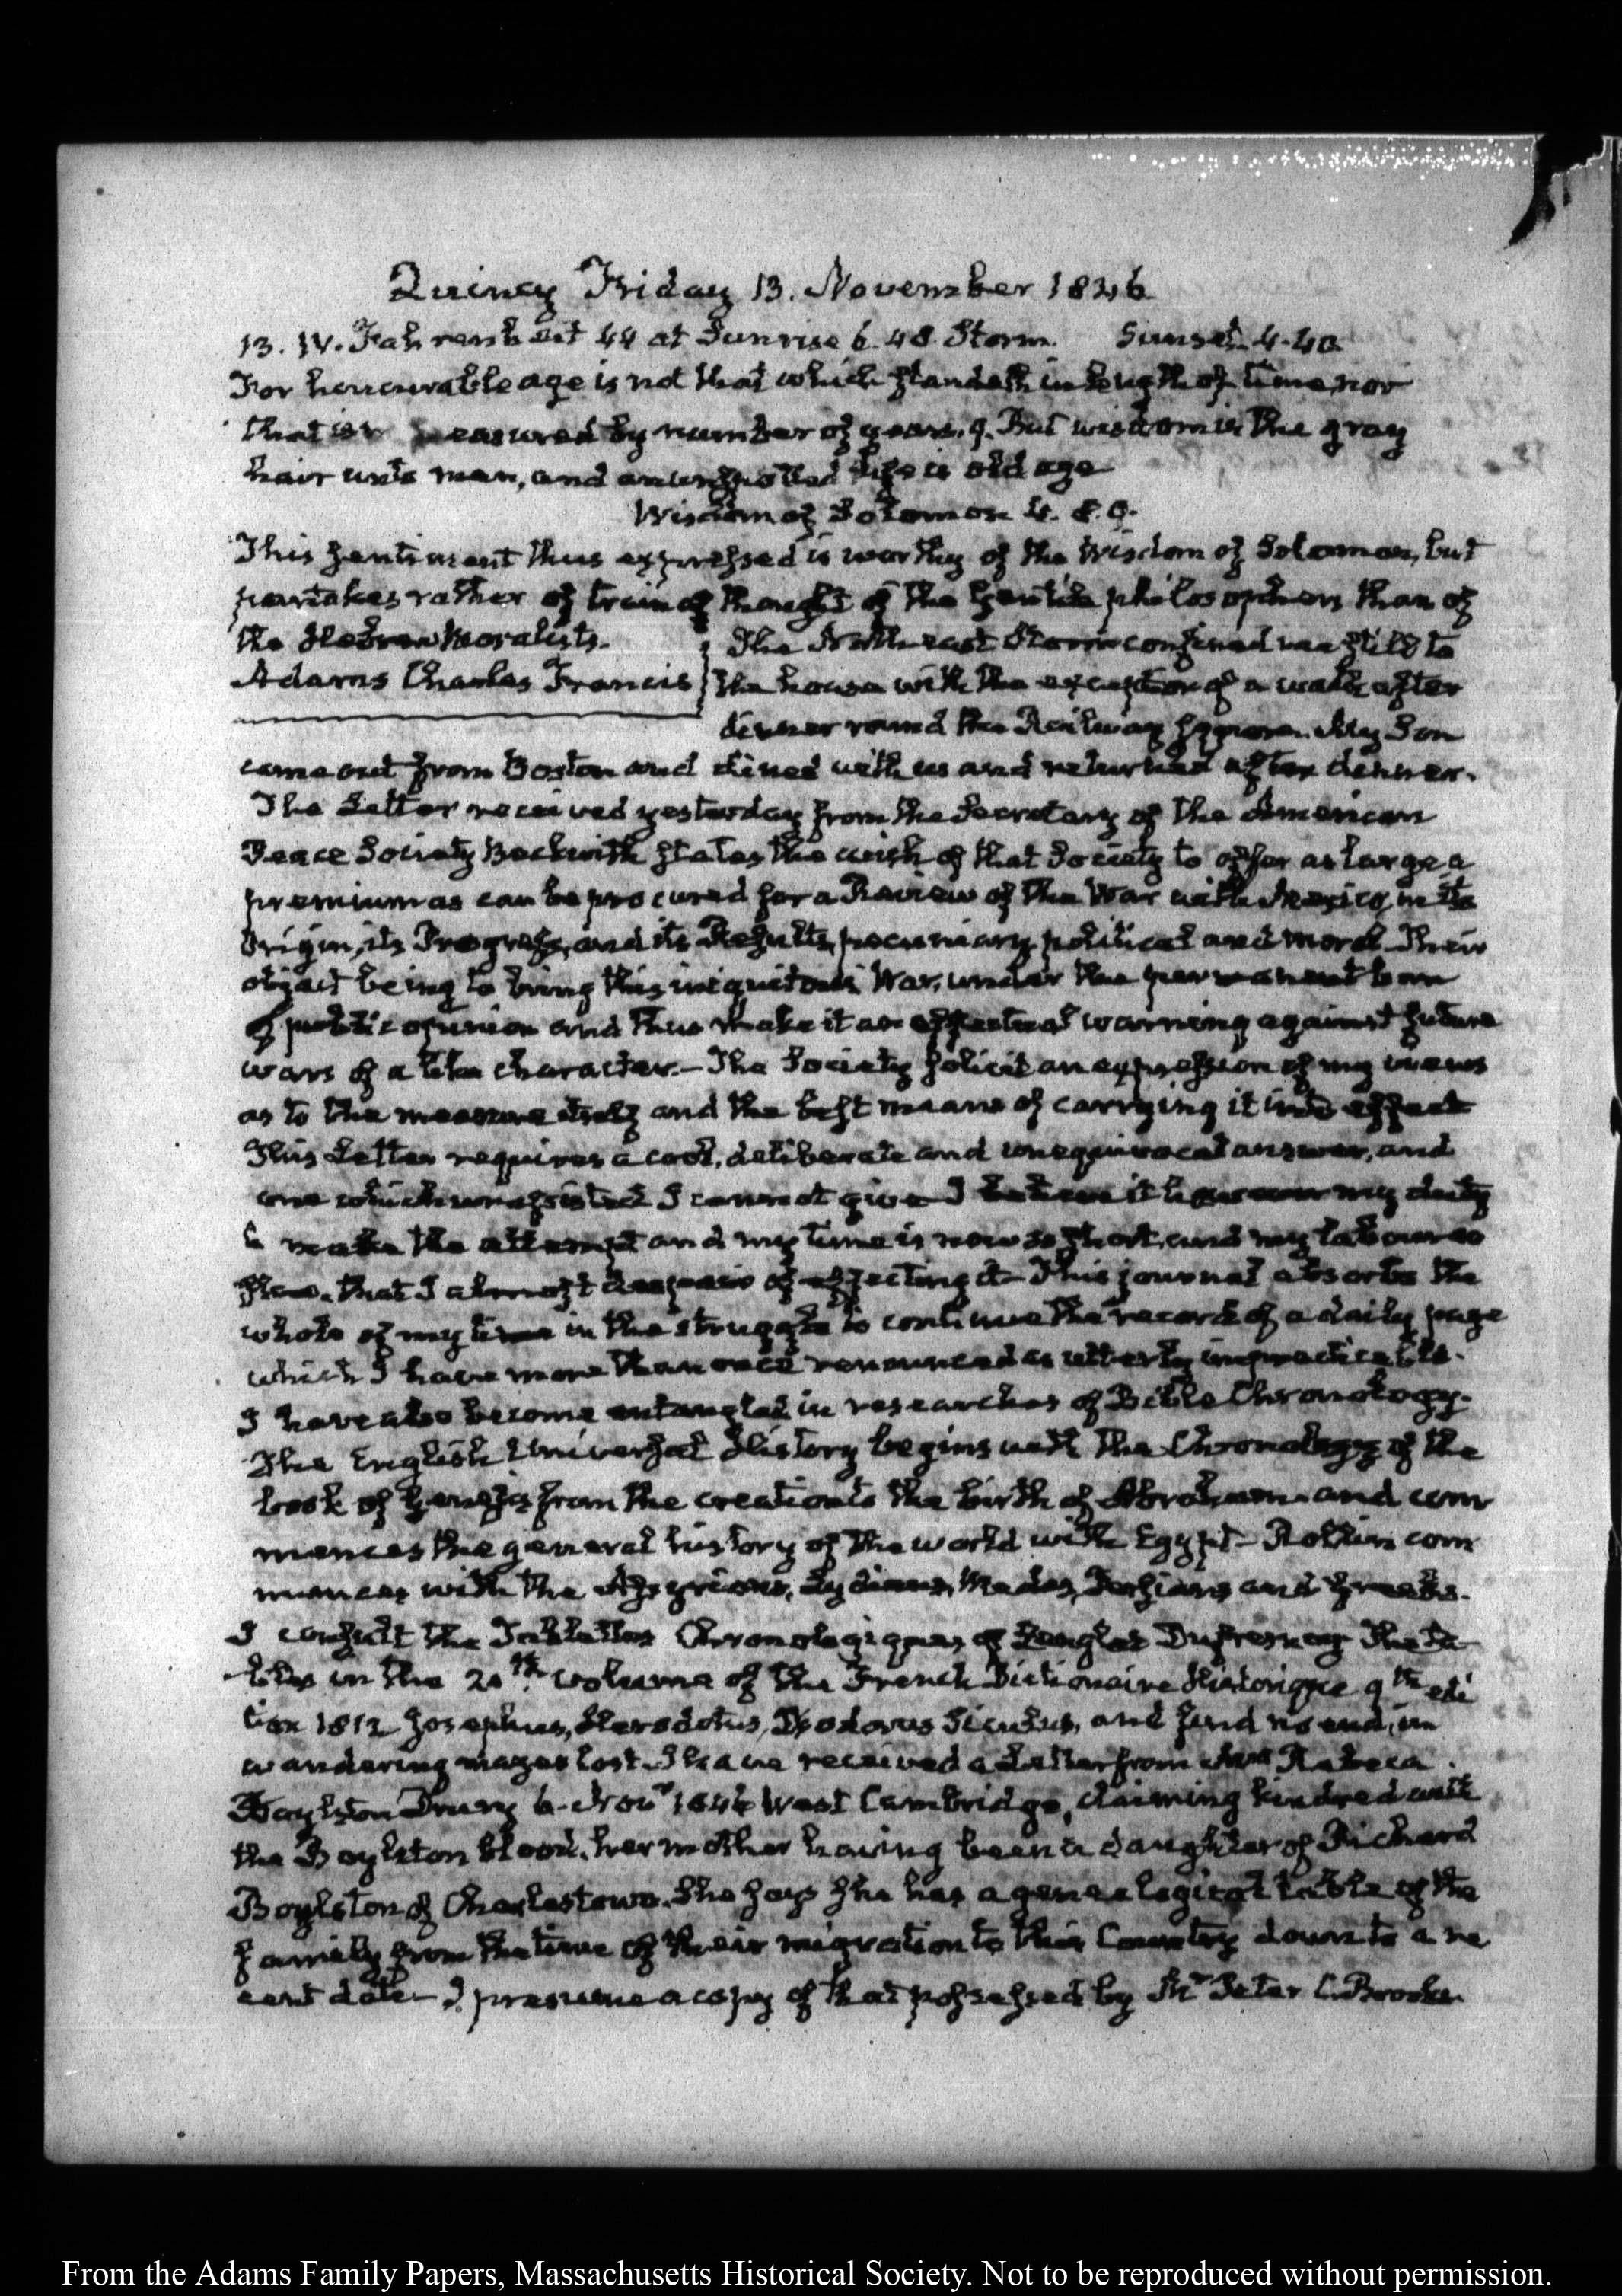 Quincy Friday 13. November 1846
13. IV. Fahrenheit 44 at Sunrise 6.48. Storm. Sunset. 4.40
For honourable age is not that which standeth in length of time, nor
that is measured by number of years. 9. But wisdom is the gray
hair unto man, and an unspotted life is old age
Wisdom of Solomon 4. 8.9.
This sentiment thus expressed is worthy of the Wisdom of Solomon, but
partakes rather of train of thought of the Gentile philosophers than of
the Hebrew Moralists.
Adams Charles Francis
The Northeast Storm confined me still to
the house with the exception of a walk after
dinner round the Railway Square. My Son
came out from Boston and dined with us and returned after dinner.
The Letter received yesterday from the Secretary of the American
Peace Society Beckwith states the wish of that Society to offer as large a
premium as can be procured for a Review of the War with Mexico, in its
Origin, its Progress, and its Results, pecuniary, political and moral. Their
object being to bring this iniquitous War, under the permanent ban
of public opinion and thus make it an effectual warning against future
wars of a like character.— The Society solicit an expression of my views
as to the measure itself and the best means of carrying it into effect
This Letter requires a cool, deliberate and unequivocal answer, and
one which unassisted I cannot give— I believe it however my duty
to make the attempt and my time is now so short, and my labour so
slow, that I almost despair of effecting it— This journal absorbs the
whole of my time in the struggle to continue the record of a daily page
which I have more than once renounced as utterly impracticable.
I have also become entangled in researches of Bible Chronology.
The English Universal History begins with the Chronology of the
book of Genesis from the creation to the birth of Abraham and com
mences the general history of the world with Egypt— Rollin com
mences with the Assyrians, Lydians, Medes, Persians and Greeks.
I consult the Tablettes Chronologiques of Lenglet Dufresnoy The ta
bles in the 20th. volume of the French Dictionaire Historique 9th edi
tion 1812 Josephus, Herodotus, Diodorus Siculus, and find no end, in
wandering mazes lost. I have received a Letter from Rebeca
Boylston Drury 6. Novr 1846 West Cambridge, claiming kindred with
the Boylston blood, her mother having been a daughter of Richard
Boylston of Charlestown. She says she has a genealogical table of the
family from the time of their migration to this Country down to a re
cent date— I presume a copy of that possessed by Mr Peter C. Brooks.
From the Adams Family Papers, Massachusetts Historical Society. Not to be reproduced without permission.